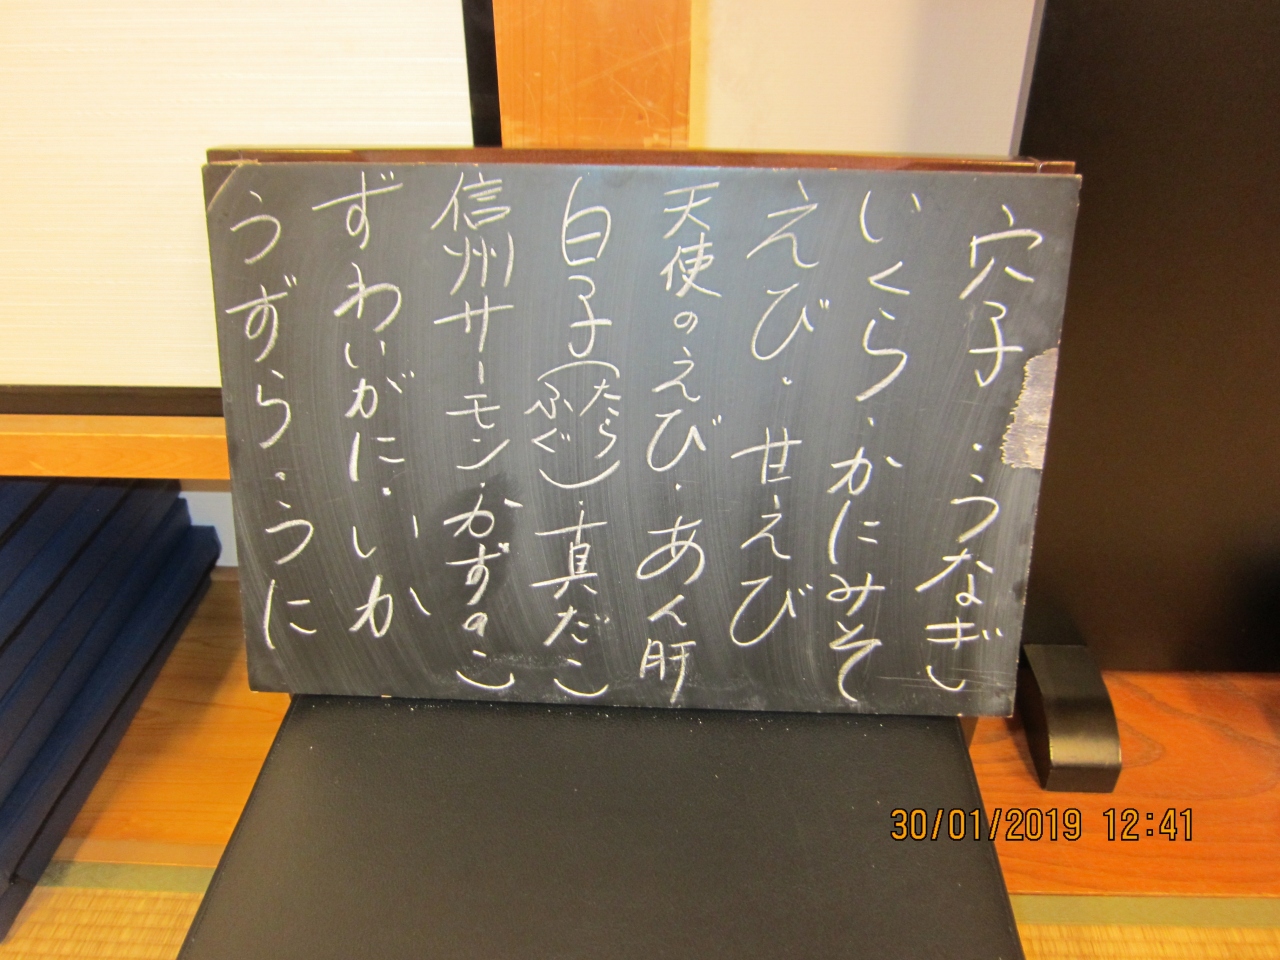 穴子・うなぎ
いくら・かにみそ
えび・甘えび
天使のえび・あん肝
白子(たらふぐ)・真だこ
信州サーモン・かずのこ
ずわいがに・いか
うずら・うに
30/01/2019 12:41